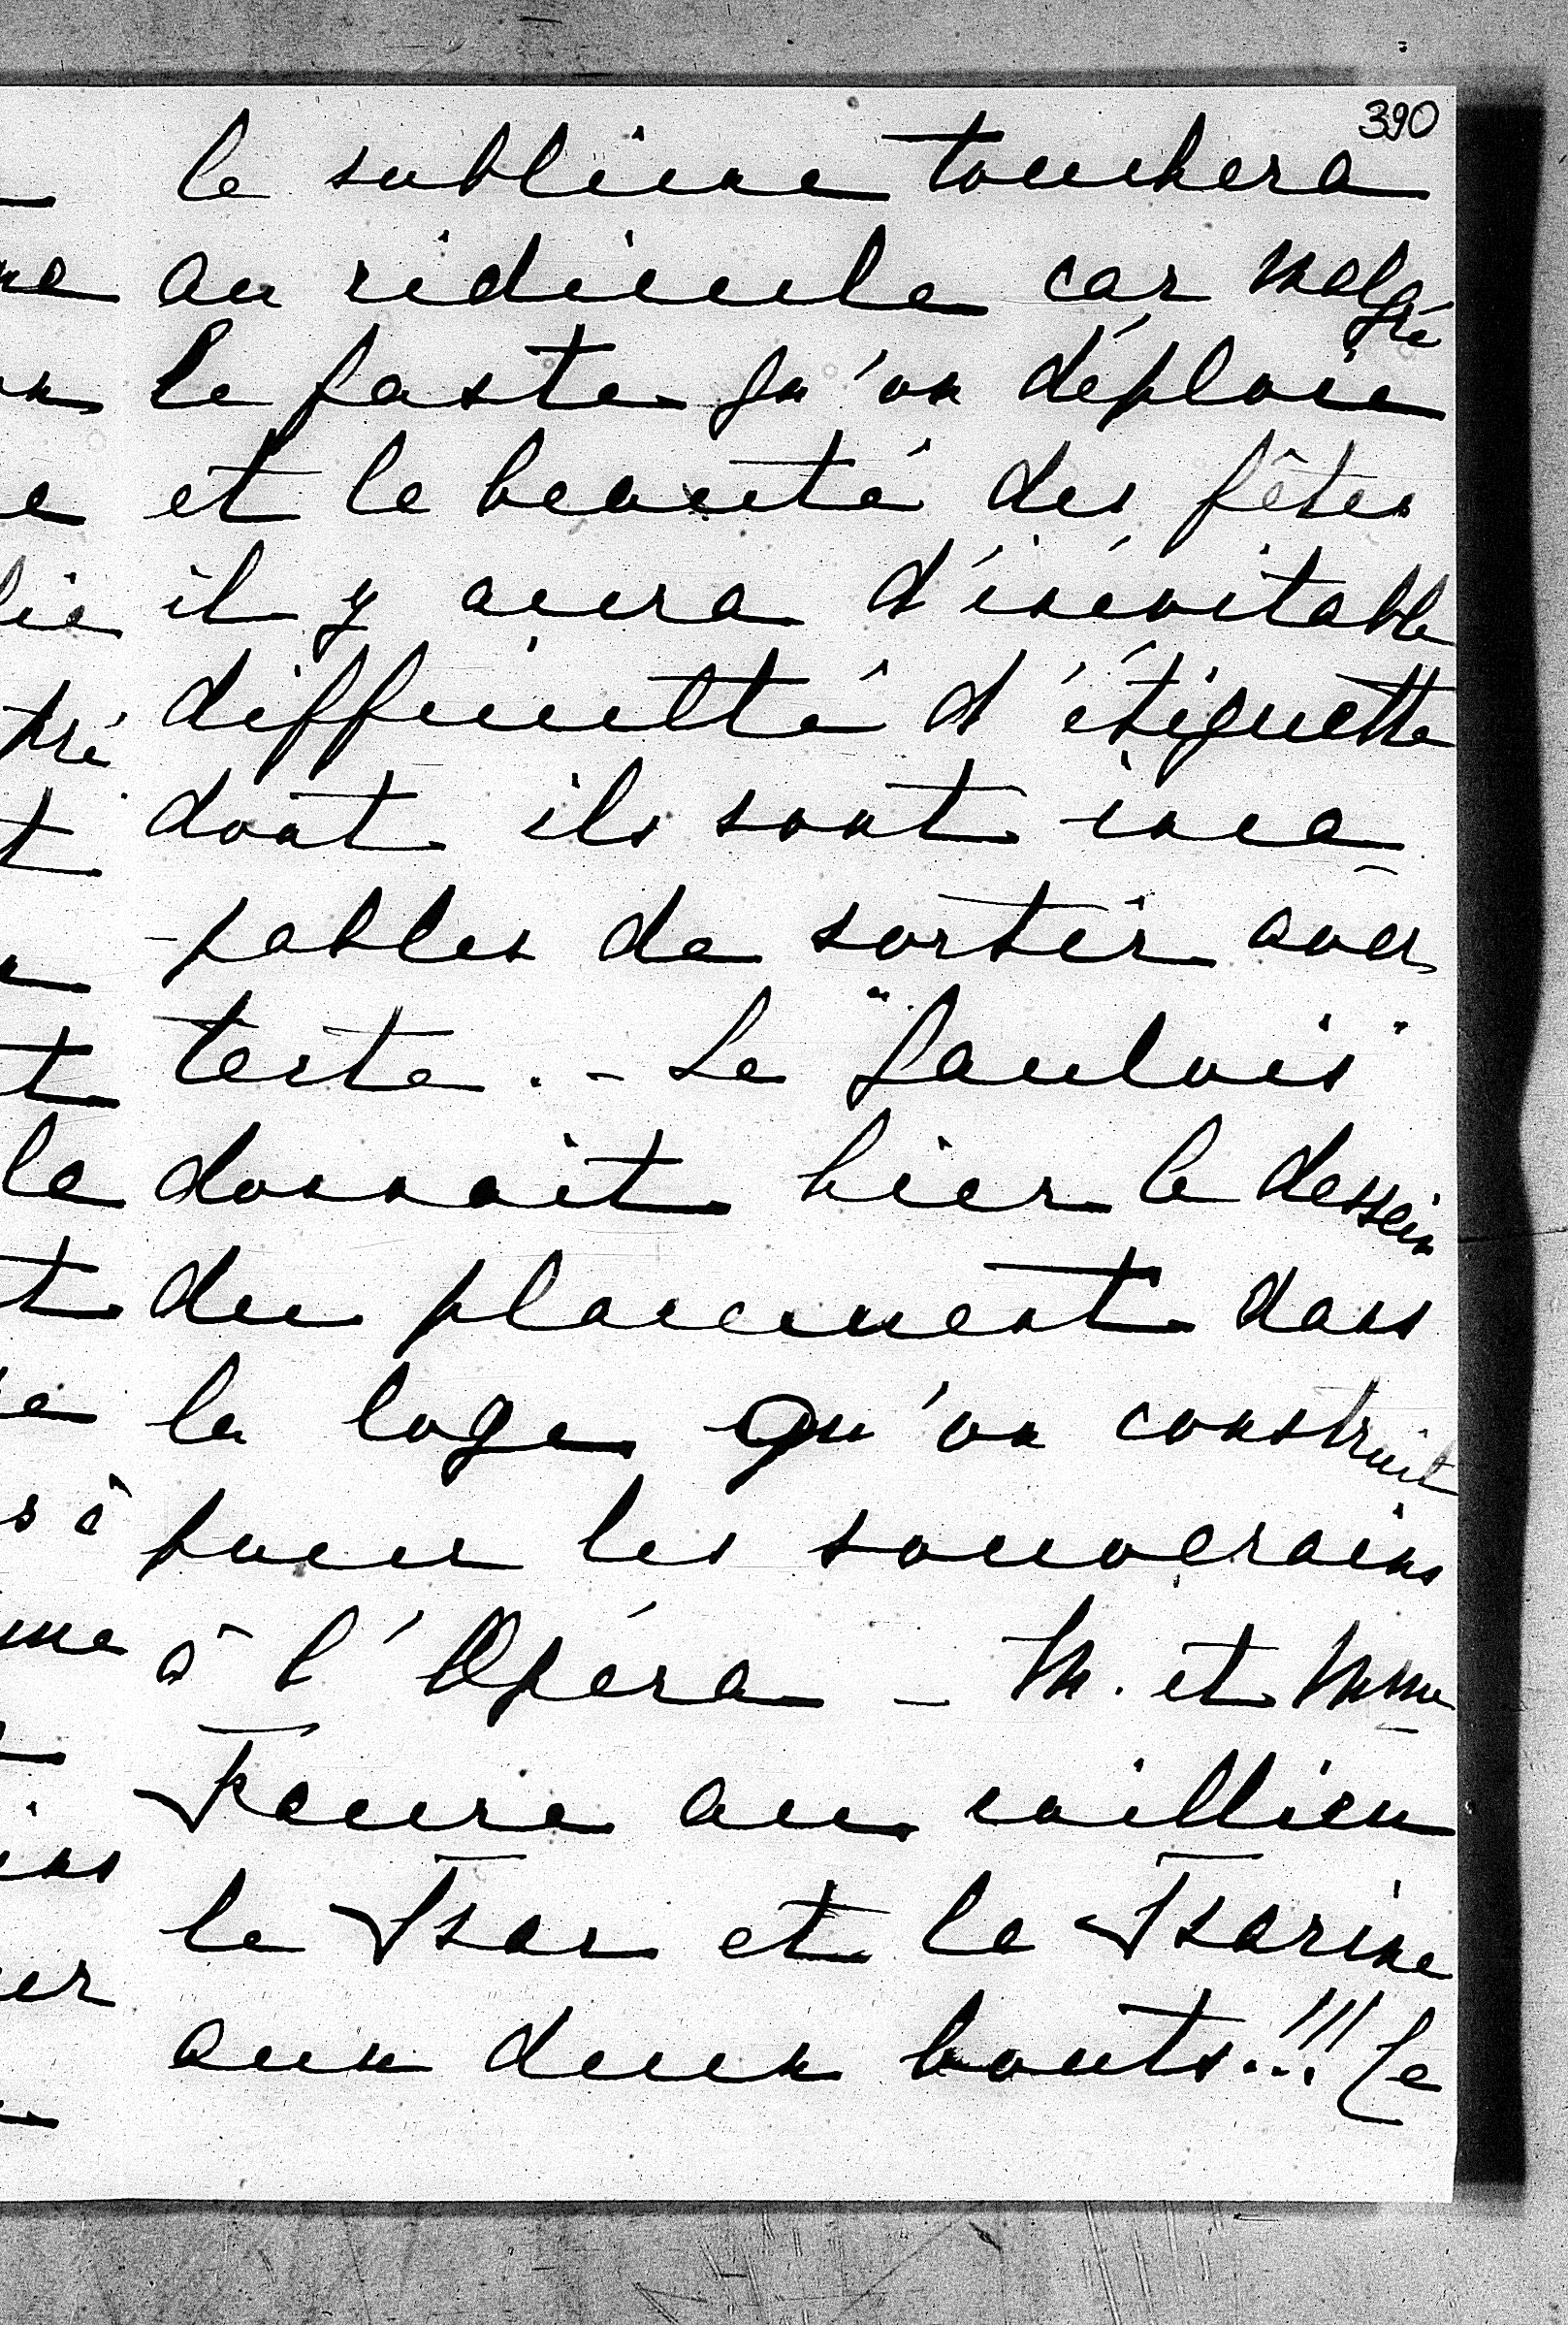 390
le sublime touchera
au ridicule car malgré
le faste qu'on déploie
et la beauté des fêtes
il y aura d'inévitable
difficulté d'étiquette
dont ils sont inca-
-pables de sortir avec
tacte. - Le "Gaulois"
donnait hier le dessein
du placement dans
la loge qu'on construit
pour les souverains
à l'Opéra - M. et Mme
Faure au millieu
le Tsar et la Tsarine
aux deux bouts..!!! Le